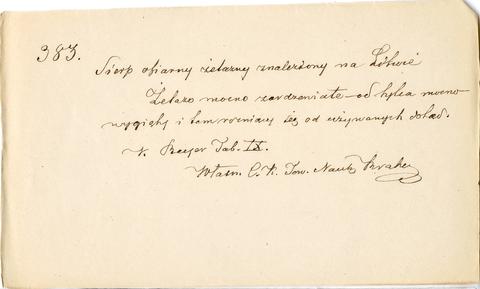 383.
Sierp ofiarny żelazny znaleziony na Litwie
Żelazo mocno zardzewiałe – od tylca mocno
wygięty i tem rożniący się od używanych dotąd.
V. Beyer Tab. IX.
Własn. C. K. Tow. Nauk. Krak.